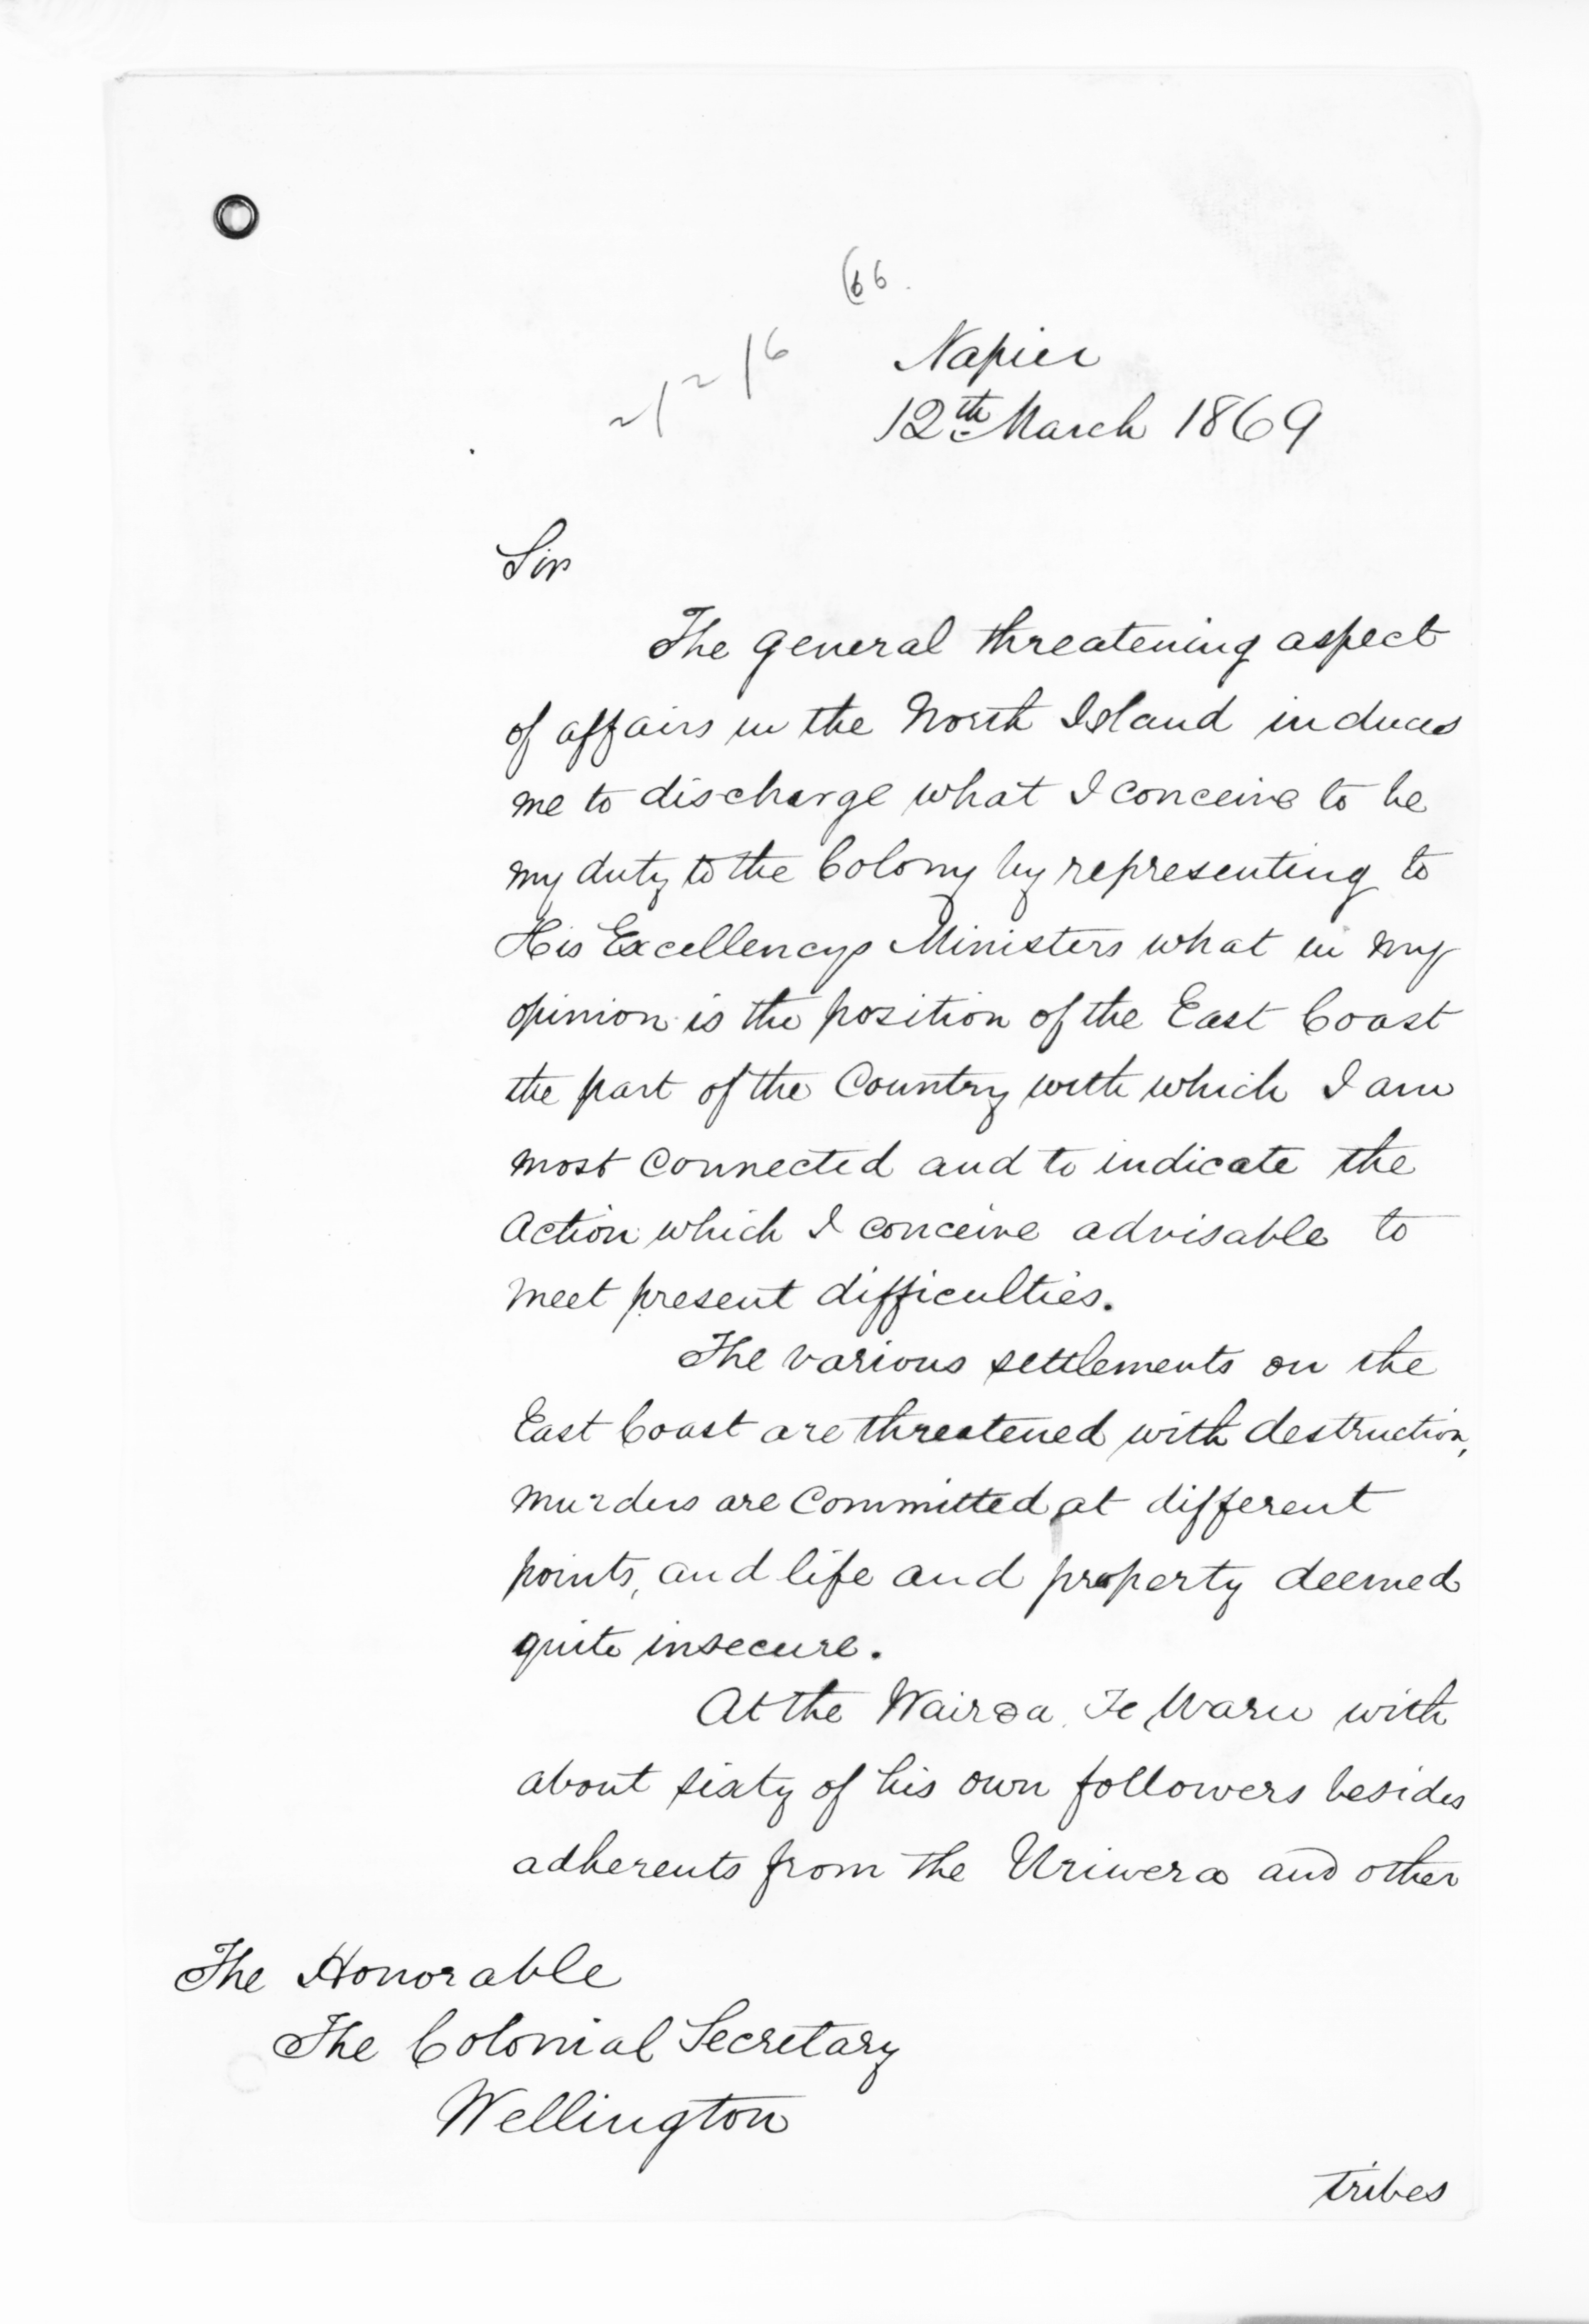 66.
Napier
12th March 1869
Sir
The general threatening aspect
of affairs in the North Island induces
me to discharge what I conceive to be
my duty to the Colony by representing to
His Excellencys Ministers what in my
opinion is the position of the East Coast
the part of the Country with which I am
most connected and to indicate the
action which I conceive advisable to
meet present difficulties.
The various settlements on the
East Coast are threatened with destruction,
murders are committed at different
points, and life and property deemed
quite insecure.
At the Wairoa, Te Waru with
about sixty of his own followers besides
adherents from the Uriwera and other
The Honorable
The Colonial Secretary
Wellington
tribes